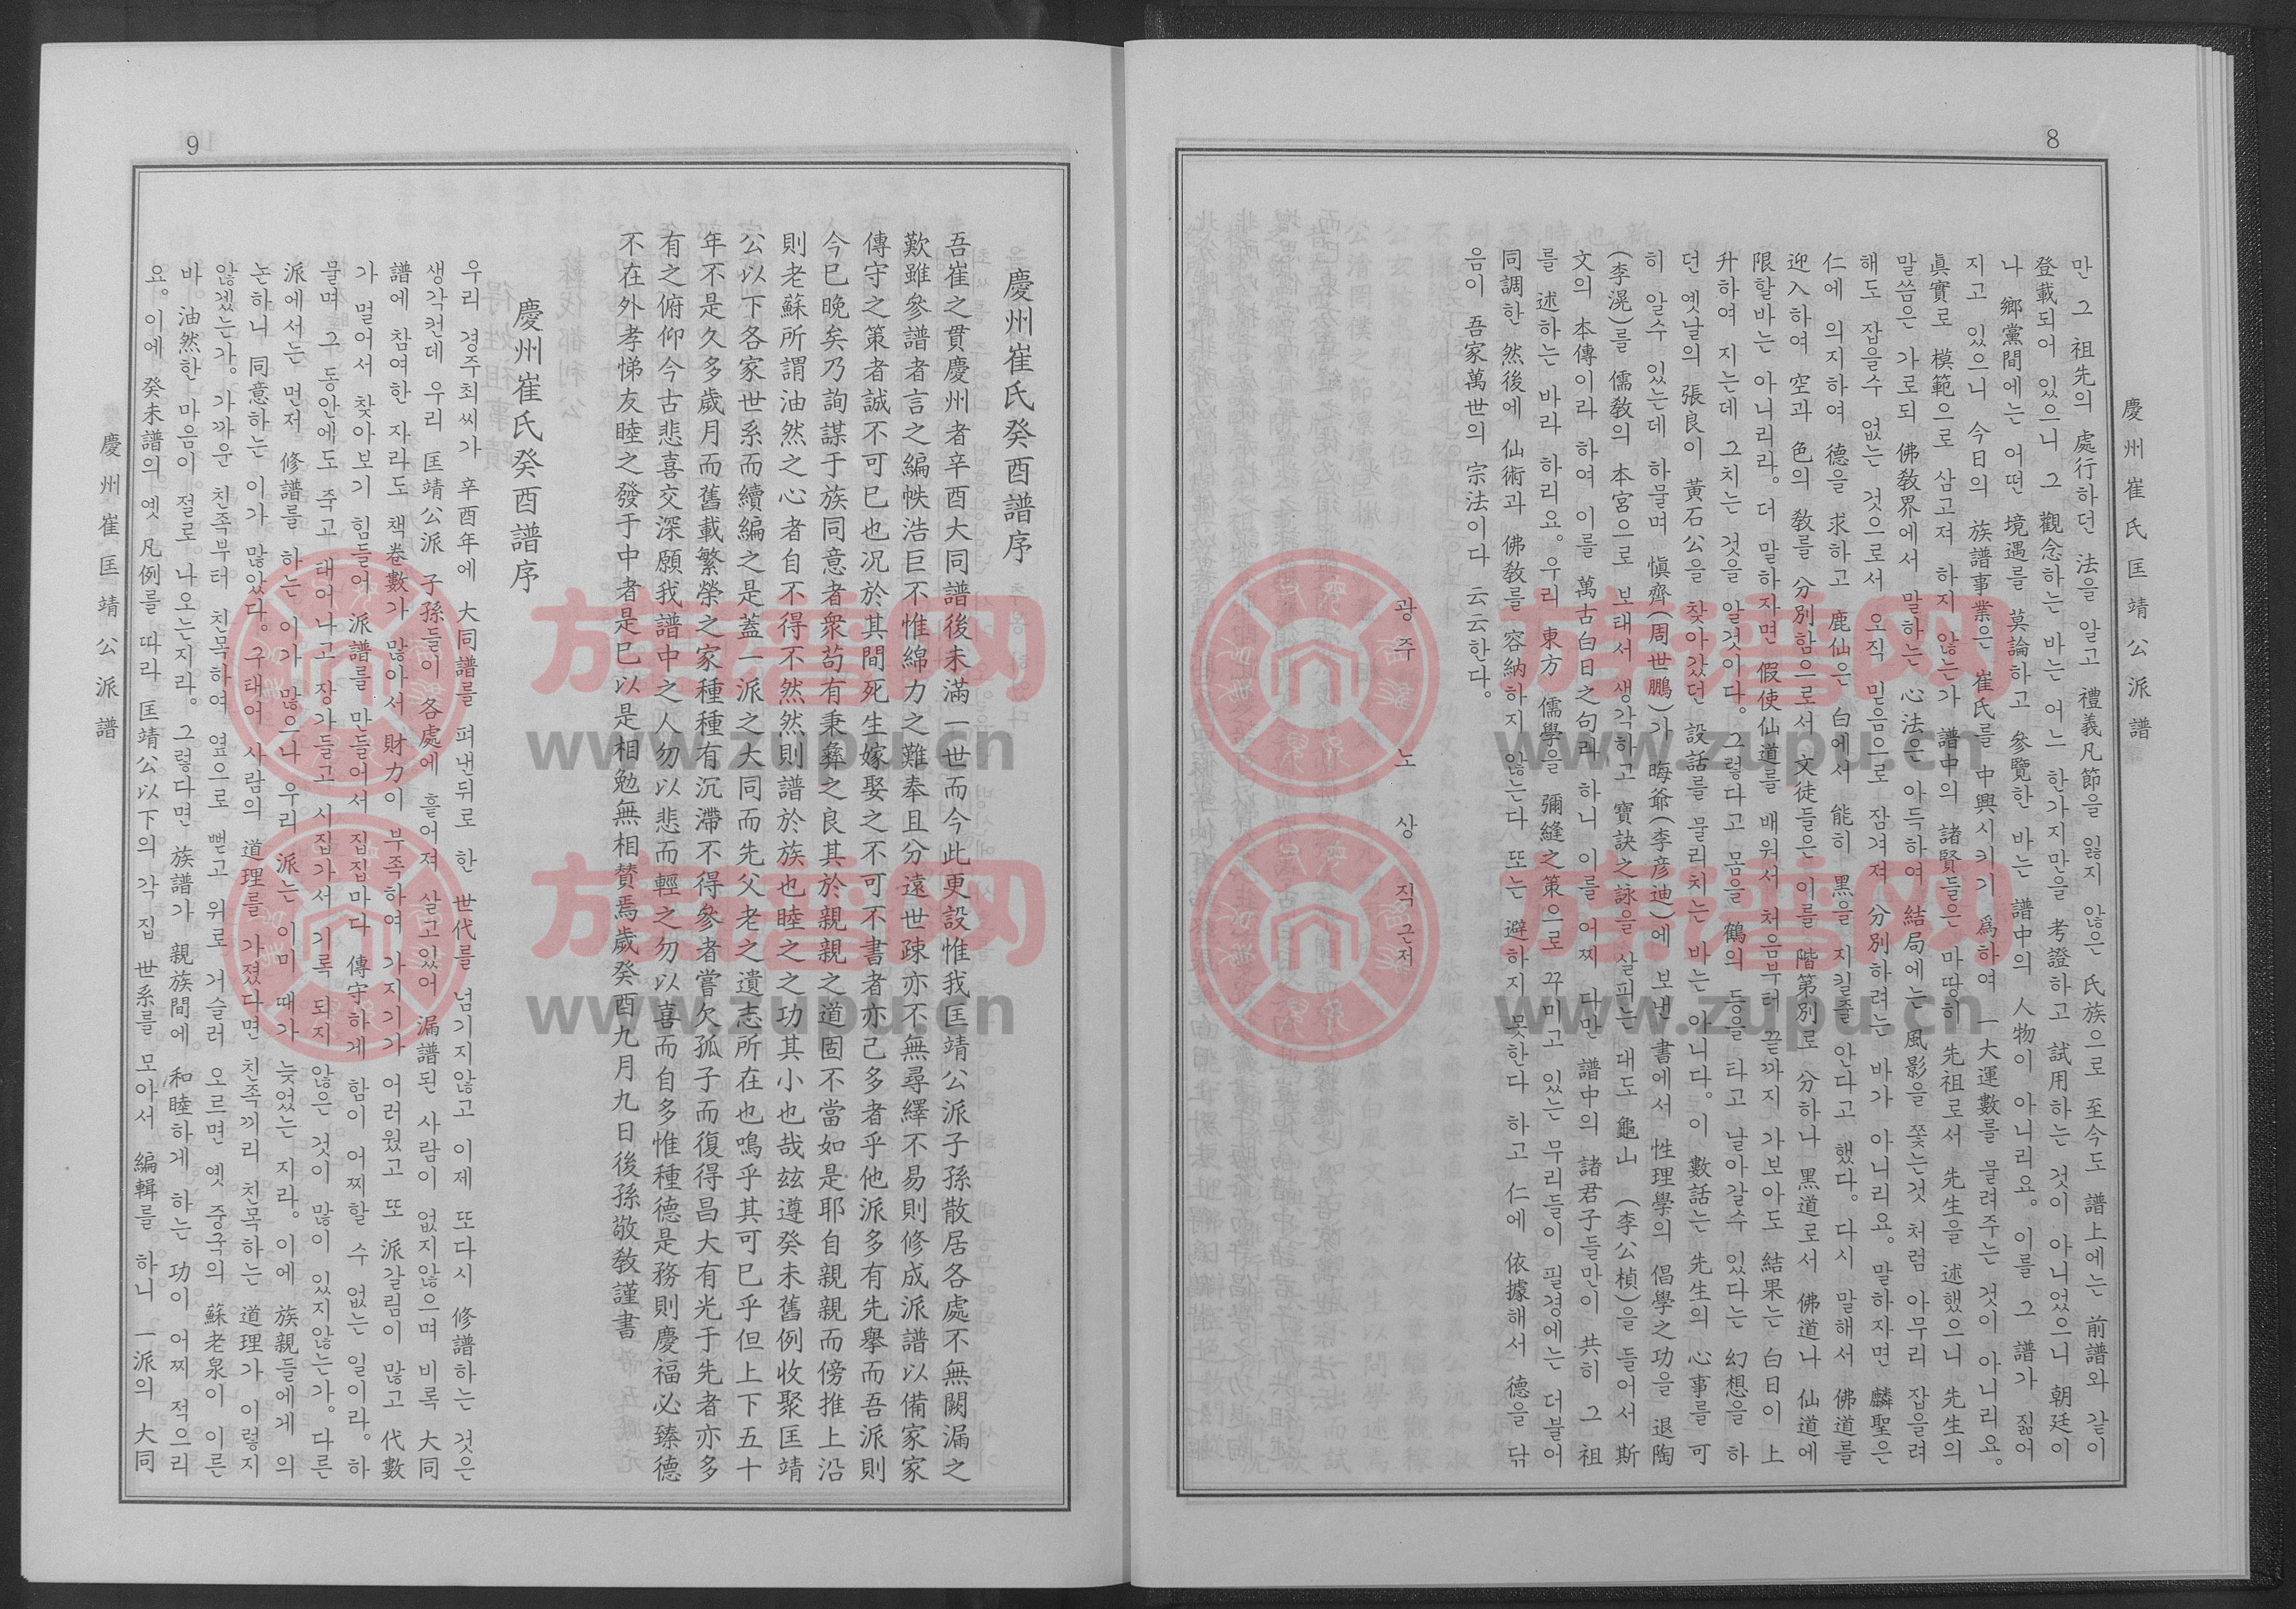 8
慶州崔氏匡靖公派譜
만 그 祖先의 處行하던 法을 알고 禮義凡節을 잃지 않은 氏族으로 至今도 譜上에는 前譜와 같이
登載되어 있으니 그 觀念하는 바는 어느 한가지만을 考證하고 試用하는 것이 아니었으니 朝廷이
나 鄕黨間에는 어떤 境遇를 莫論하고 參覽한 바는 譜中의 人物이 아니리요。이를 그 譜가 짊어
지고 있으니 今日의 族譜事業은 崔氏를 中興시키기 爲하여 一大運數를 물려주는 것이 아니리요。
眞實로 模範으로 삼고저 하지 않는가 譜中의 諸賢들은 마땅히 先祖로서 先生을 述했으니 先生의
말씀은 가로되 佛敎界에서 말하는 心法은 아득하여 結局에는 風影을 쫓는것 처럼 아무리 잡을려
해도 잡을수 없는 것으로서 오직 믿음으로 잠겨져 分別하려는 바가 아니리요。말하자면 麟聖은
仁에 의지하여 德을 求하고 鹿仙은 白에서 能히 黑을 지킬줄 안다고 했다。다시 말해서 佛道를
迎入하여 空과 色의 敎를 分別함으로서 文徒들은 이를 階第別로 分하나 黑道로서 佛道나 仙道에
限할바는 아니리라。더 말하자면 假使仙道를 배워서 처음부터 끝까지 가보아도 結果는 白日이 上
升하여 지는데 그치는 것을 알것이다。그렇다고 몸을 鶴의 등을 타고 날아갈수 있다는 幻想을 하
던 옛날의 張良이 黃石公을 찾아갔던 設話를 물리치는 바는 아니다。이 數話는 先生의 心事를 可
히 알수 있는데 하물며 愼齊(周世鵬)가 晦爺(李彦迪)에 보낸 書에서 性理學의 倡學之功을 退陶
(李滉)를 儒敎의 本宮으로 보태서 생각하고 寶訣之詠을 살피는 대도 龜山 (李公楨)을 들어서 斯
文의 本傳이라 하여 이를 萬古白日之句라 하니 이를 어찌 다만 譜中의 諸君子들만이 共히 그 祖
를 述하는 바라 하리요。우리 東方 儒學을 彌縫之策으로 꾸미고 있는 무리들이 필경에는 더불어
同調한 然後에 仙術과 佛敎를 容納하지 않는다 또는 避하지 못한다 하고 仁에 依據해서 德을 닦
음이 吾家萬世의 宗法이다 云云한다。
광주 노 상 직 근저
9
慶州崔氏癸酉譜序
吾崔之貫慶州者辛酉大同譜後未滿一世而今此更設惟我匡靖公派子孫散居各處不無闕漏之
歎雖參譜者言之編帙浩巨不惟綿力之難奉且分遠世疎亦不無尋繹不易則修成派譜以備家家
傳守之策者誠不可已也况於其間死生嫁娶之不可不書者亦己多者乎他派多有先擧而吾派則
今巳晩矣乃詢謀于族同意者衆苟有秉彝之良其於親親之道固不當如是耶自親親而傍推上沿
則老蘇所謂油然之心者自不得不然然則譜於族也睦之之功其小也哉玆遵癸未舊例收聚匡靖
公以下各家世系而續編之是蓋一派之大同而先父老之遺志所在也鳴乎其可巳乎但上下五十
年不是久多歲月而舊載繁榮之家種種有沉滯不得參者嘗欠孤子而復得昌大有光于先者亦多
有之俯仰今古悲喜交深願我譜中之人勿以悲而輕之勿以喜而自多惟種德是務則慶福必臻德
不在外孝悌友睦之發于中者是巳以是相勉無相贊焉歲癸酉九月九日後孫敬敎謹書
慶州崔氏癸酉譜序
우리 경주최씨가 辛酉年에 大同譜를 펴낸뒤로 한 世代를 넘기지않고 이제 또다시 修譜하는 것은
생각컨데 우리 匡靖公派 子孫들이 各處에 흩어져 살고있어 漏譜된 사람이 없지않으며 비록 大同
譜에 참여한 자라도 책卷數가 많아서 財力이 부족하여 가지기가 어려웠고 또 派갈림이 많고 代數
가 멀어서 찾아보기 힘들어 派譜를 만들어서 집집마다 傳守하게 함이 어찌할 수 없는 일이라。하
물며 그 동안에도 죽고 태어나고 장가들고 시집가서 기록 되지 않은 것이 많이 있지않는가。다른
派에서는 먼저 修譜를 하는 이가 많으나 우리 派는 이미 때가 늦었는 지라。이에 族親들에게 의
논하니 同意하는 이가 많았다。구태어 사람의 道理를 가졌다면 친족끼리 친목하는 道理가 이렇지
않겠는가。가까운 친족부터 친목하여 옆으로 뻗고 위로 거슬러 오르면 옛 중국의 蘇老泉이 이른
바 油然한 마음이 절로 나오는지라。그렇다면 族譜가 親族間에 和睦하게 하는 功이 어찌 적으리
요。이에 癸未譜의 옛 凡例를 따라 匡靖公以下의 각 집 世系를 모아서 編輯를 하니 一派의 大同
慶州崔匡靖公派譜
族谱网
www.zupu.cn
族谱网
www.zupu.cn
族谱网
www.zupu.cn
族谱网
www.zupu.cn